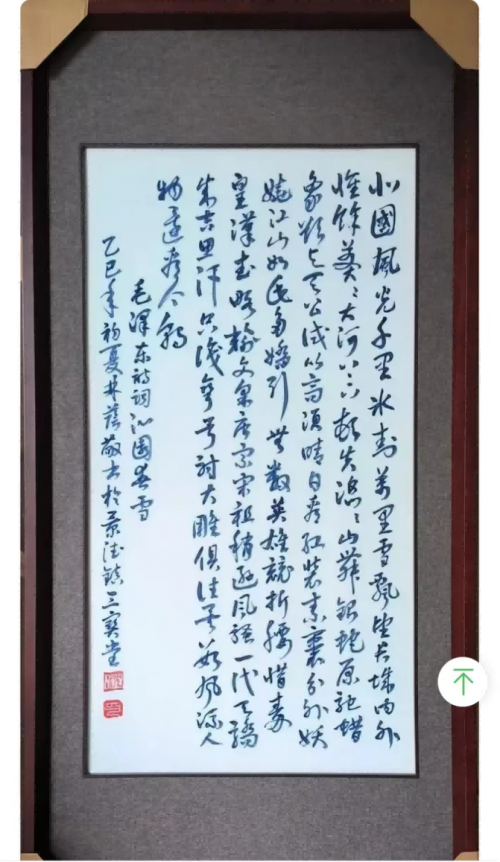 北國風光千里冰封萬里雪飄望长城内外
惟馀莽〻大河上下頓失滔〻山舞銀蛇原馳蜡
象欲与天公試比高須晴日看紅裝素裹分外妖
嬈江山如此多嬌引無數英雄競折腰惜秦
皇漢武略輸文采唐宗宋祖稍遜風騷一代天驕
成吉思汗只識彎弓射大雕俱往矣數風流人
物還看今朝
毛澤东詩詞沁園春雪
乙巳年初夏蔭敬书於景德鎮三寶堂